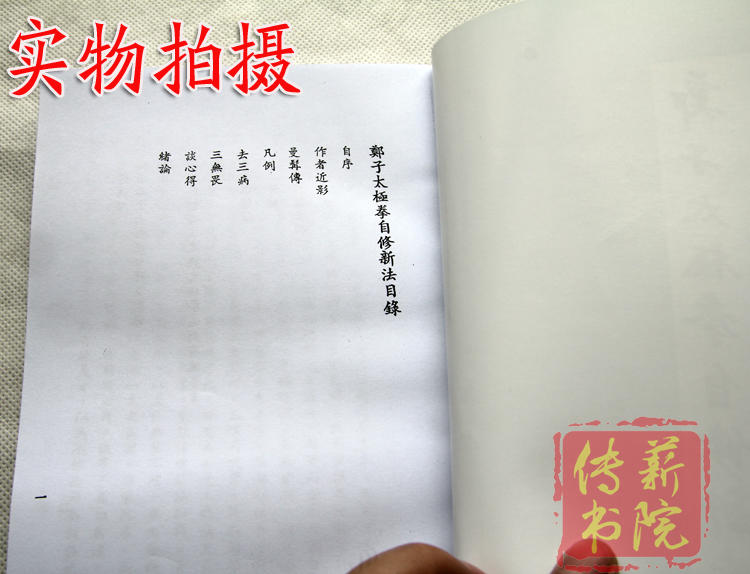 实物拍摄
鄭子太極拳自修新法目錄
自序
作者近影
曼髯傳
凡例
去三病
三無畏
談心得
緒論
一
传薪
书院